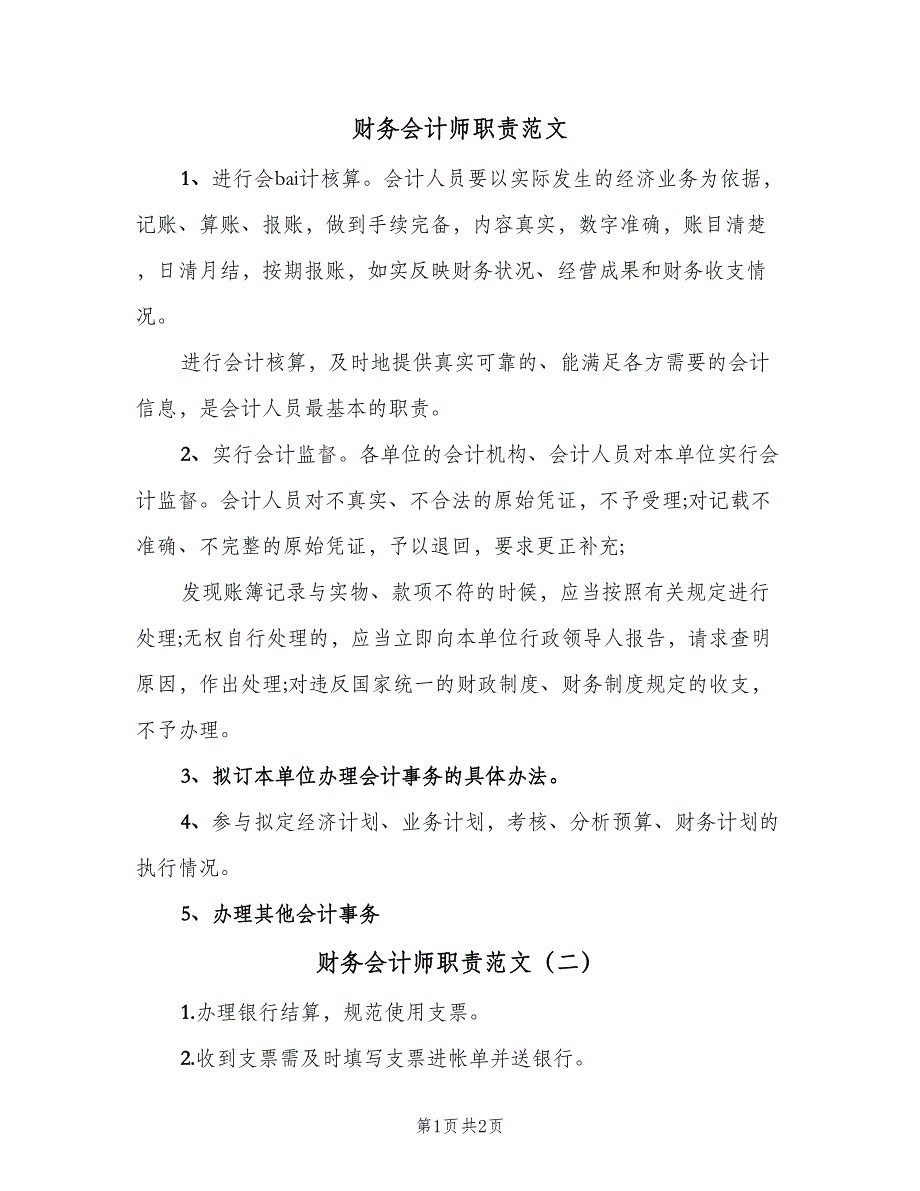 财务会计师职责范文
1、进行会bai计核算。会计人员要以实际发生的经济业务为依据，
记账、算账、报账，做到手续完备，内容真实，数字准确，账目清楚
，日清月结，按期报账，如实反映财务状况、经营成果和财务收支情
况。
进行会计核算，及时地提供真实可靠的、能满足各方需要的会计
信息，是会计人员最基本的职责。
2、实行会计监督。各单位的会计机构、会计人员对本单位实行会
计监督。会计人员对不真实、不合法的原始凭证，不予受理;对记载不
准确、不完整的原始凭证，予以退回，要求更正补充;
发现账簿记录与实物、款项不符的时候，应当按照有关规定进行
处理;无权自行处理的，应当立即向本单位行政领导人报告，请求查明
原因，作出处理;对违反国家统一的财政制度、财务制度规定的收支，
不予办理。
3、拟订本单位办理会计事务的具体办法。
4、参与拟定经济计划、业务计划，考核、分析预算、财务计划的
执行情况。
5、办理其他会计事务
财务会计师职责范文（二）
1.办理银行结算，规范使用支票。
2.收到支票需及时填写支票进帐单并送银行。
第1页共2页